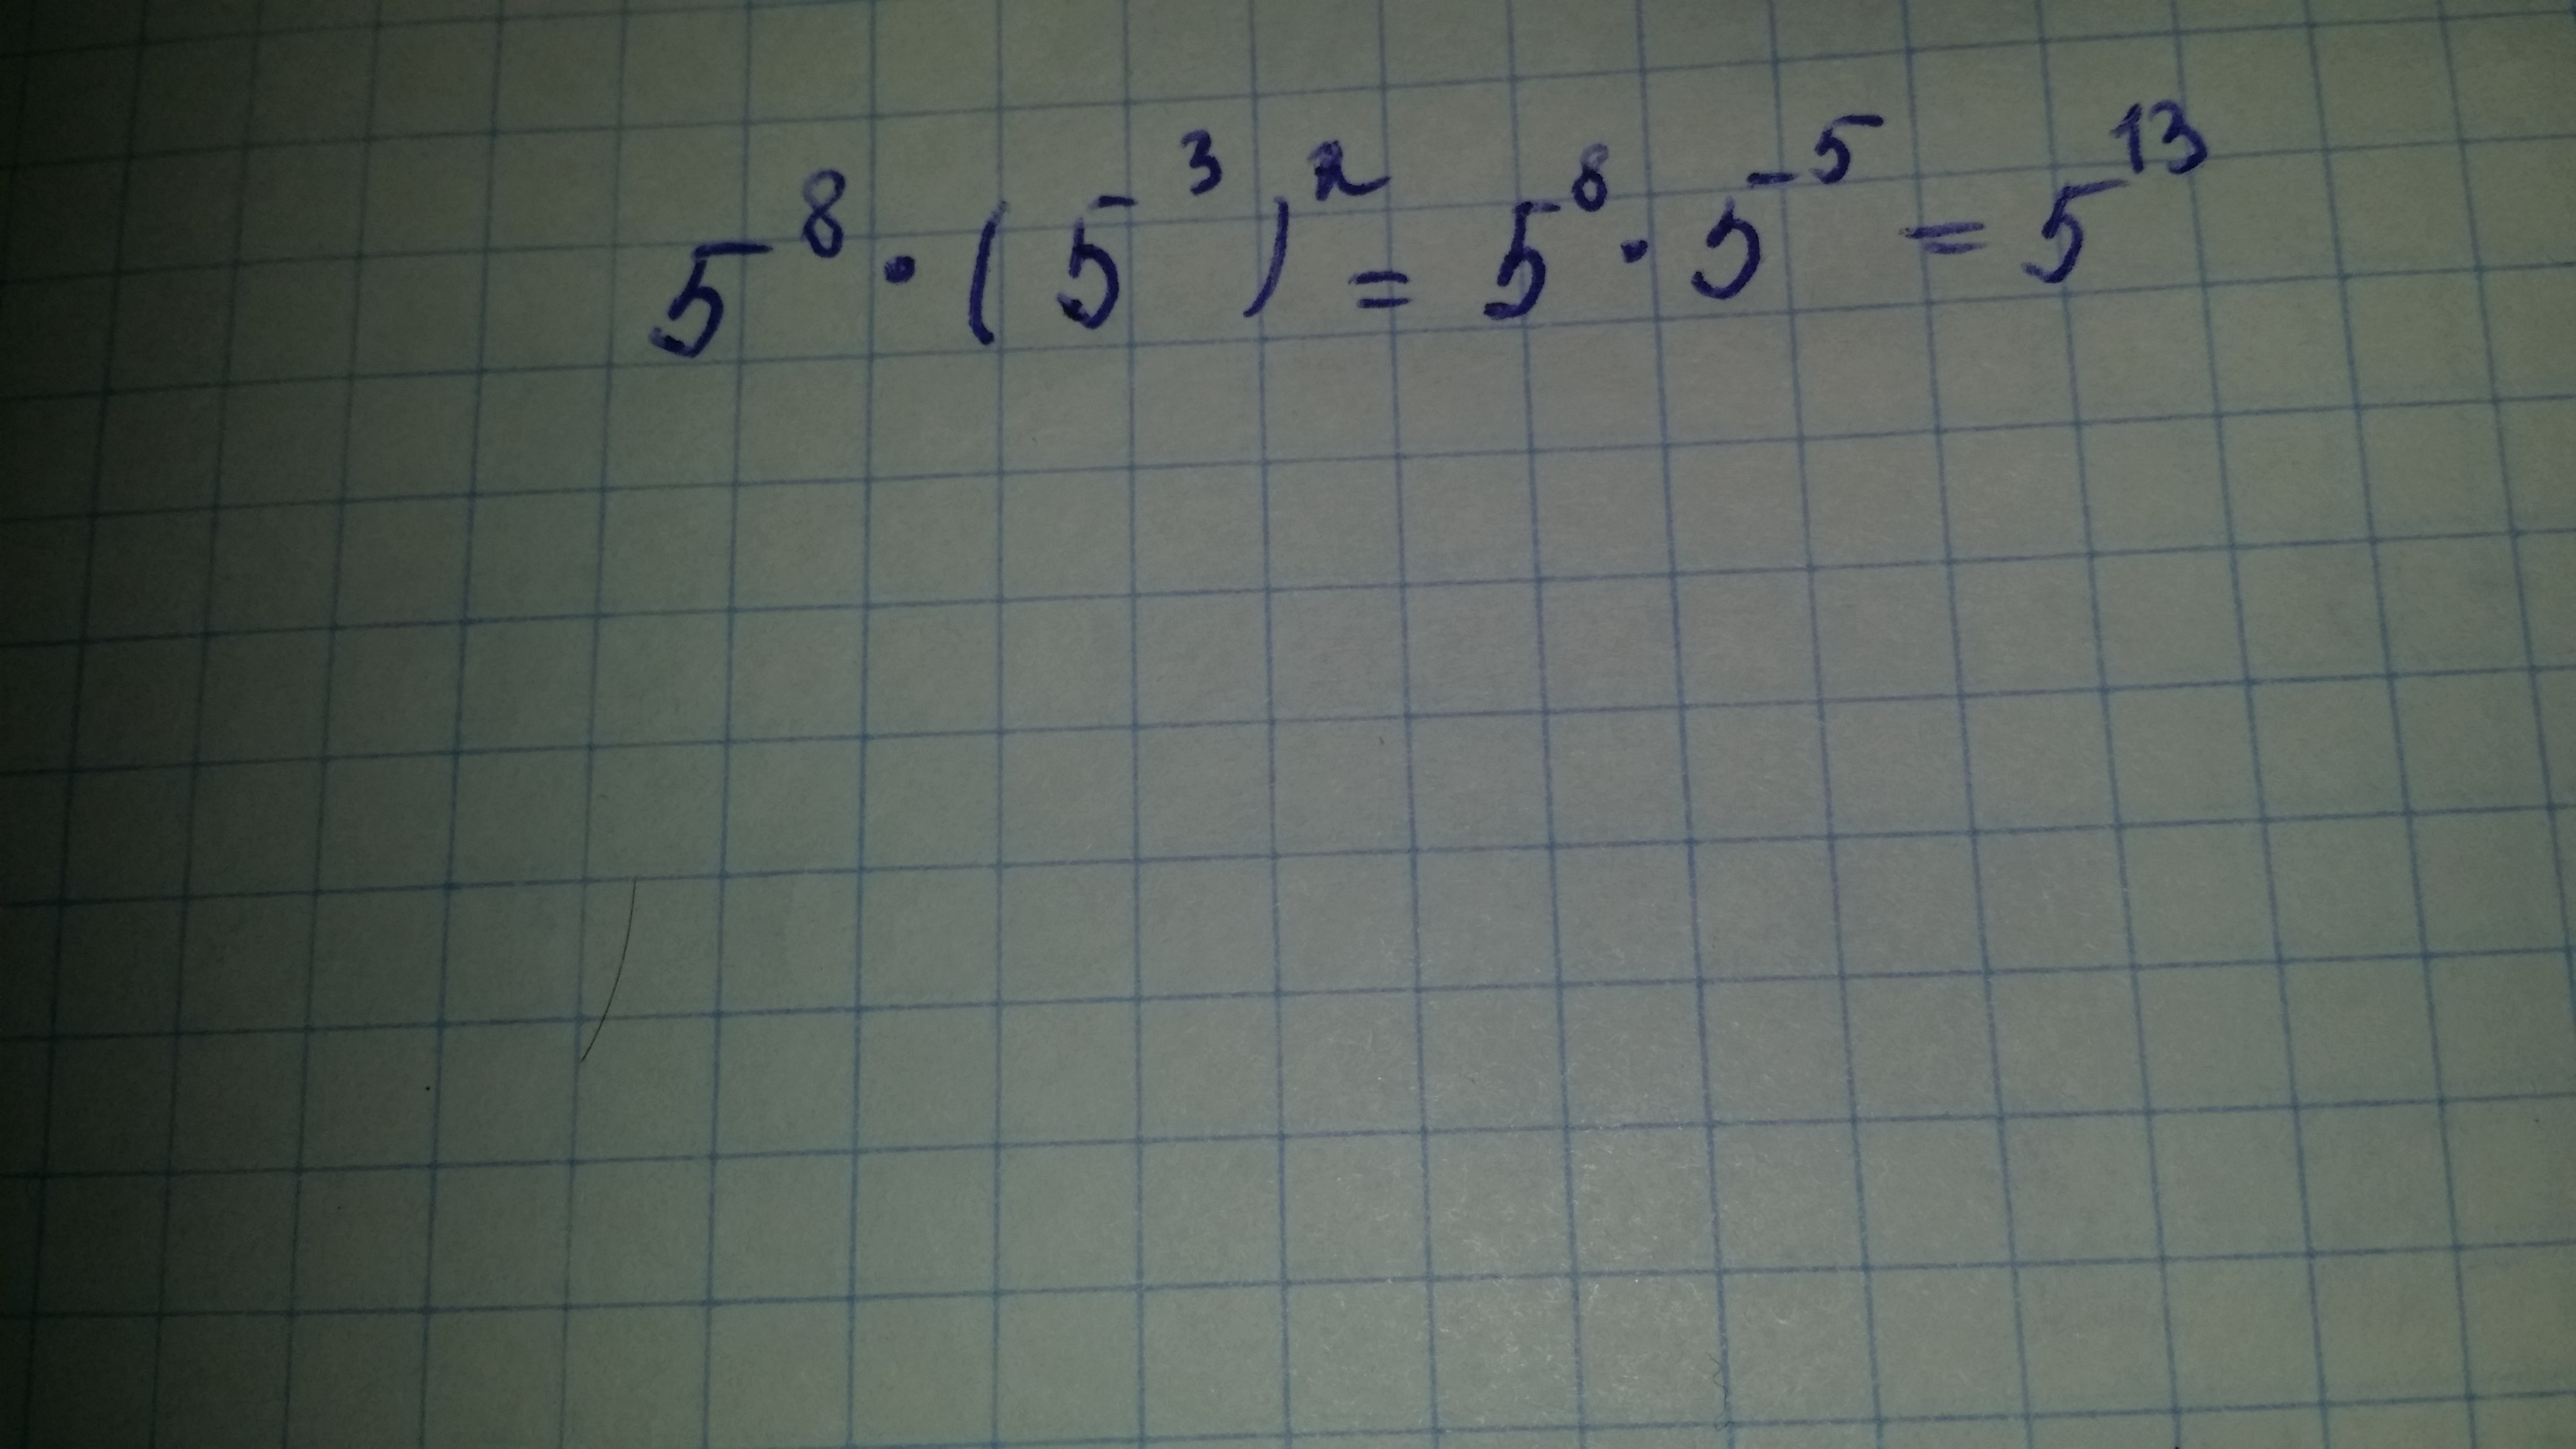 5⁸ · (5³)² = 5⁸ · 5⁻⁵ = 5¹³